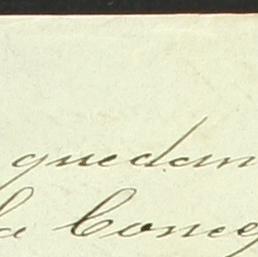 quedan
la Conce